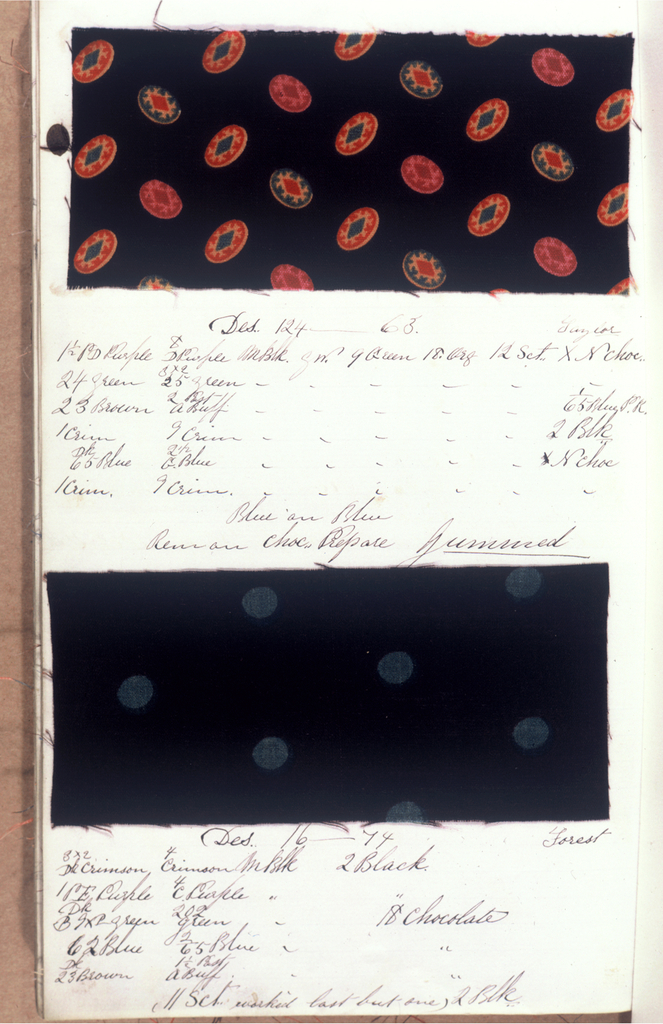 Des. 124 — 63.
1½ P.D Purple Purple M Blk. 9 Green 18. Org 12 Sct. X N Choc.
24 Green 8x2 25 Green " " " " " "
23 Brown a Buff " " " " 65 Blue P.K.
1 Crim 9 Crim " " " " " 2 Blk
Dk 65 Blue Blue " " " " " X N Choc
1 Crim. 9 Crim. " " " " " "
Blue on Blue
on Choc. Prepare Gummed
Des. 16 — 74 Forest
8x2 Dk Crimson 4 Crimson M Blk 2 Black.
Purple 4 C Purple " "
Dk Green Green " 18 Chocolate
62 Blue 65 Blue " "
Dk 23 Brown a Buff. " "
11 Sct. worked last but one, 2 Blk